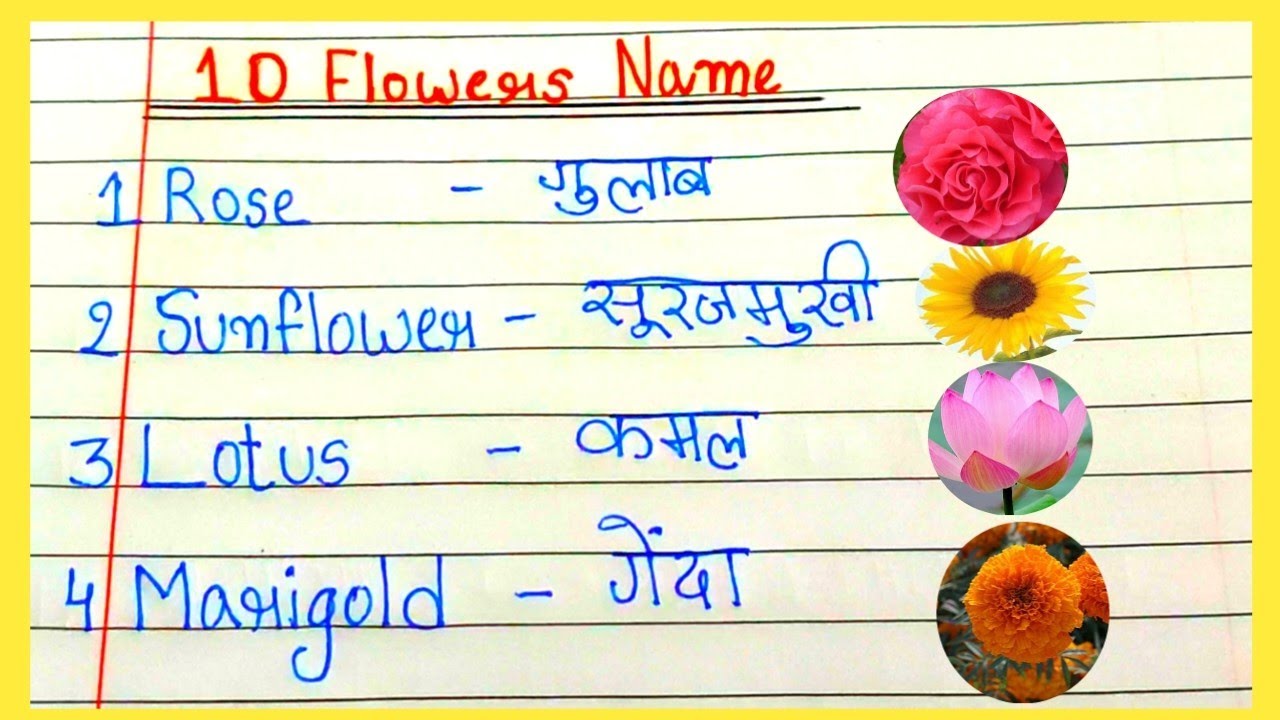 10 Flowers Name
1 Rose - गुलाब
2 Sunflower - सूरजमुखी
3 Lotus - कमल
4 Marigold - गेंदा